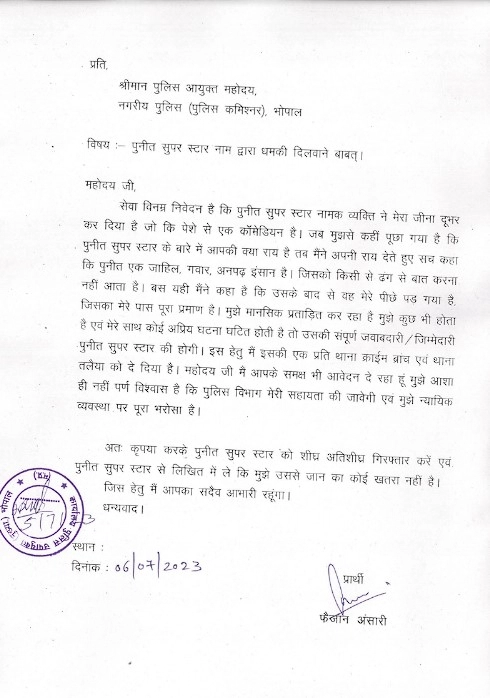 प्रति,
श्रीमान पुलिस आयुक्त महोदय,
नगरीय पुलिस (पुलिस कमिश्नर), भोपाल
विषय :– पुनीत सुपर स्टार नाम द्वारा धमकी दिलवाने बाबत्।
महोदय जी,
सेवा विनम्र निवेदन है कि पुनीत सुपर स्टार नामक व्यक्ति ने मेरा जीना दूभर
कर दिया है जो कि पेशे से एक कॉमेडियन है। जब मुझसे कहीं पूछा गया है कि
पुनीत सुपर स्टार के बारे में आपकी क्या राय है तब मैंने अपनी राय देते हुए सच कहा
कि पुनीत एक जाहिल, गवार, अनपढ़ इंसान है। जिसको किसी से ढंग से बात करना
नहीं आता है। बस यही मैंने कहा है कि उसके बाद से वह मेरे पीछे पड़ गया है,
जिसका मेरे पास पूरा प्रमाण है। मुझे मानसिक प्रताड़ित कर रहा है मुझे कुछ भी होता
है एवं मेरे साथ कोई अप्रिय घटना घटित होती है तो उसकी संपूर्ण जवाबदारी/जिम्मेदारी
पुनीत सुपर स्टार की होगी। इस हेतु मैं इसकी एक प्रति थाना क्राईम ब्रांच एवं थाना
तलैया को दे दिया है। महोदय जी मैं आपके समक्ष भी आवेदन दे रहा हूं मुझे आशा
ही नहीं पर्ण विश्वास है कि पुलिस विभाग मेरी सहायता की जावेगी एवं मुझे न्यायिक
व्यवस्था पर पूरा भरोसा है।
अतः कृपया करके पुनीत सुपर स्टार को शीघ्र अतिशीघ्र गिरफ्तार करें एवं
पुनीत सुपर स्टार से लिखित में ले कि मुझे उससे जान का कोई खतरा नहीं है।
जिस हेतु मैं आपका सदैव आभारी रहूंगा।
धन्यवाद।
कार्यालय पुलिस उपायुक्त भोपाल
स्थान :
दिनांक : 06/07/2023
प्रार्थी
फैजान अंसारी